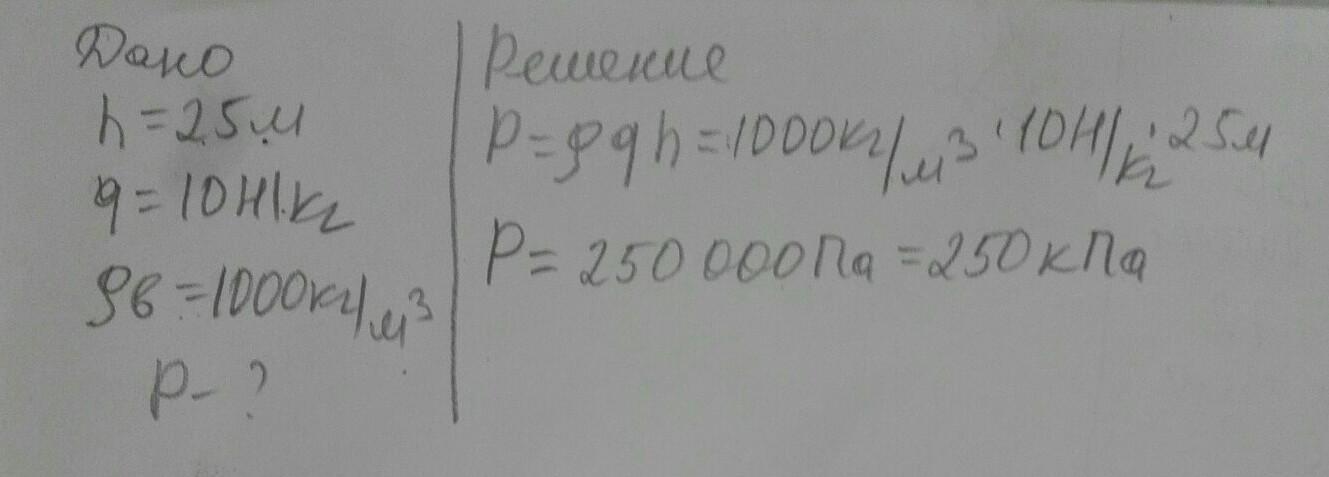 Дано
h = 25 м
g = 10 Н/кг
ρв = 1000 кг/м³
p - ?
Решение
p = ρgh = 1000 кг/м³ · 10 Н/кг · 25 м
P = 250 000 Па = 250 кПа